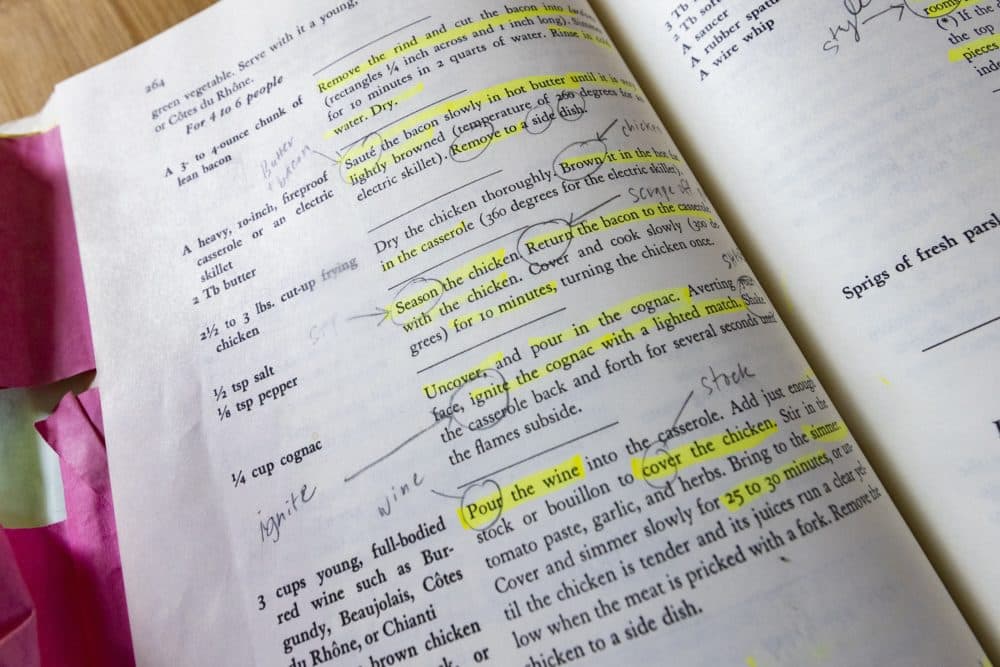 264
green vegetable. Serve with it a young,
or Côtes du Rhône.
For 4 to 6 people
A 3- to 4-ounce chunk of
lean bacon
Butter
bacon
A heavy, 10-inch, fireproof
casserole or an electric
skillet
2 Tb butter
2½ to 3 lbs. cut-up frying
chicken
½ tsp salt
⅛ tsp pepper
¼ cup cognac
ignite
wine
3 cups young, full-bodied
red wine such as Bur-
gundy, Beaujolais, Côtes
du Rhône, or Chianti
brown chicken
or
Remove the rind and cut the bacon into
(rectangles ¼ inch across and 1 inch long).
for 10 minutes in 2 quarts of water. Rinse in
water. Dry.
Sauté the bacon slowly in hot butter until it is
lightly browned (temperature of 260 degrees for
electric skillet). Remove to a side dish.
chicken
Dry the chicken thoroughly. Brown it in the hot
in the casserole (360 degrees for the electric skillet).
scrape off
Season the chicken. Return the bacon to the casserole
with the chicken. Cover and cook slowly (300 de-
grees) for 10 minutes, turning the chicken once.
Uncover, and pour in the cognac. Averting
face, ignite the cognac with a lighted match. Shake
the casserole back and forth for several seconds until
the flames subside.
stock
Pour the wine into the casserole. Add just enough
stock or bouillon to cover the chicken. Stir in the
tomato paste, garlic, and herbs. Bring to the simmer.
Cover and simmer slowly for 25 to 30 minutes, or un-
til the chicken is tender and its juices run a clear yel-
low when the meat is pricked with a fork. Remove the
chicken to a side dish.
3 Tb
3 Tb
A saucer
A rubber
A wire whip
style
(*) If the
the top
pieces
Sprigs of fresh